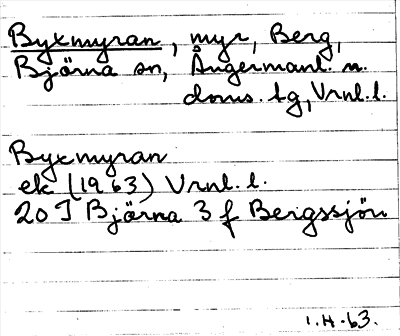 Byxmyran, myr, Berg,
Björna sn, Ångermanl. n.
doms. tg, Vrnl. l.
Byxmyran
ek (1963) Vrnl. l.
20 I Björna 3 f Bergssjön
1.H.63.